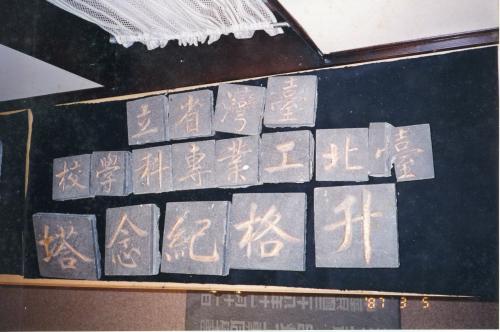 臺灣省立
臺北工業專科學校
升格紀念塔
'87 3 5